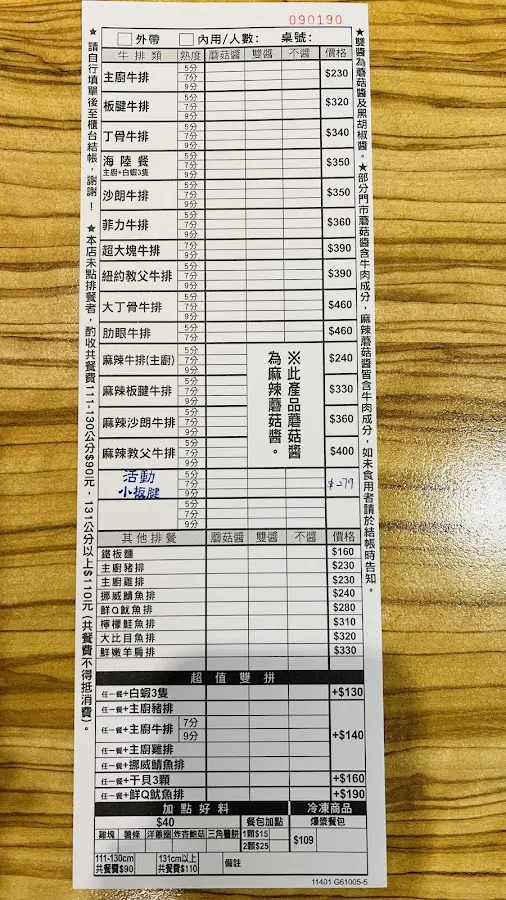 090190
外帶 內用/人數: 桌號:
牛排類 熟度 蘑菇醬 雙醬 不醬 價格
主廚牛排 5分 7分 9分 $230
板腱牛排 5分 7分 9分 $320
丁骨牛排 5分 7分 9分 $340
海陸餐 主廚+白蝦3隻 5分 7分 9分 $350
沙朗牛排 5分 7分 9分 $350
菲力牛排 5分 7分 9分 $360
超大塊牛排 7分 9分 $390
紐約教父牛排 5分 7分 9分 $390
大丁骨牛排 5分 7分 9分 $460
肋眼牛排 5分 7分 9分 $460
麻辣牛排(主廚) 5分 7分 9分 $240
麻辣板腱牛排 5分 7分 9分 $330
麻辣沙朗牛排 5分 7分 9分 $360
麻辣教父牛排 5分 7分 9分 $400
※此產品蘑菇醬
為麻辣蘑菇醬。
活動
小板腱 5分 7分 9分 $279
5分 7分 9分
其他排餐 蘑菇醬 雙醬 不醬 價格
鐵板麵 $160
主廚豬排 $230
主廚雞排 $230
挪威鯖魚排 $240
鮮Q魷魚排 $280
檸檬鮭魚排 $310
大比目魚排 $320
鮮嫩羊肩排 $330
超值雙拼
任一餐+白蝦3隻 +$130
任一餐+主廚豬排
任一餐+主廚牛排 7分 9分 +$140
任一餐+主廚雞排
任一餐+挪威鯖魚排
任一餐+干貝3顆 +$160
任一餐+鮮Q魷魚排 +$190
加點好料 冷凍商品
$40 餐包加點 爆漿餐包
雞塊 薯條 洋蔥圈 炸杏鮑菇 三角薯餅 1顆$15 $109
2顆$25
111-130cm 131cm以上 備註
共餐費$90 共餐費$110
11401 G61005-5
★請自行填單後至櫃台結帳,謝謝! ★本店未點排餐者,酌收共餐費111-130公分$90元,131公分以上$110元(共餐費不得抵消費)。
★雙醬為蘑菇醬及黑胡椒醬。★部分門市蘑菇醬含牛肉成分,麻辣蘑菇醬皆含牛肉成分,如未食用者請於結帳時告知。